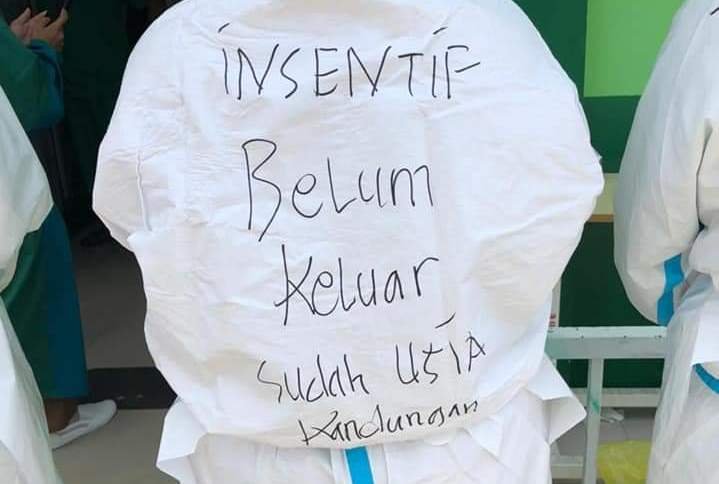 iNSENTiF
BeLum
Keluar
Sudah USiA
Kandungan